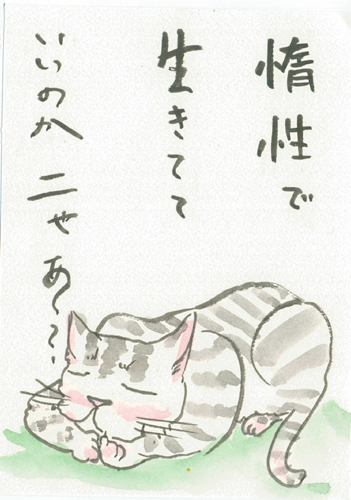 惰性で
生きてて
いいのか ニャあ〜〜